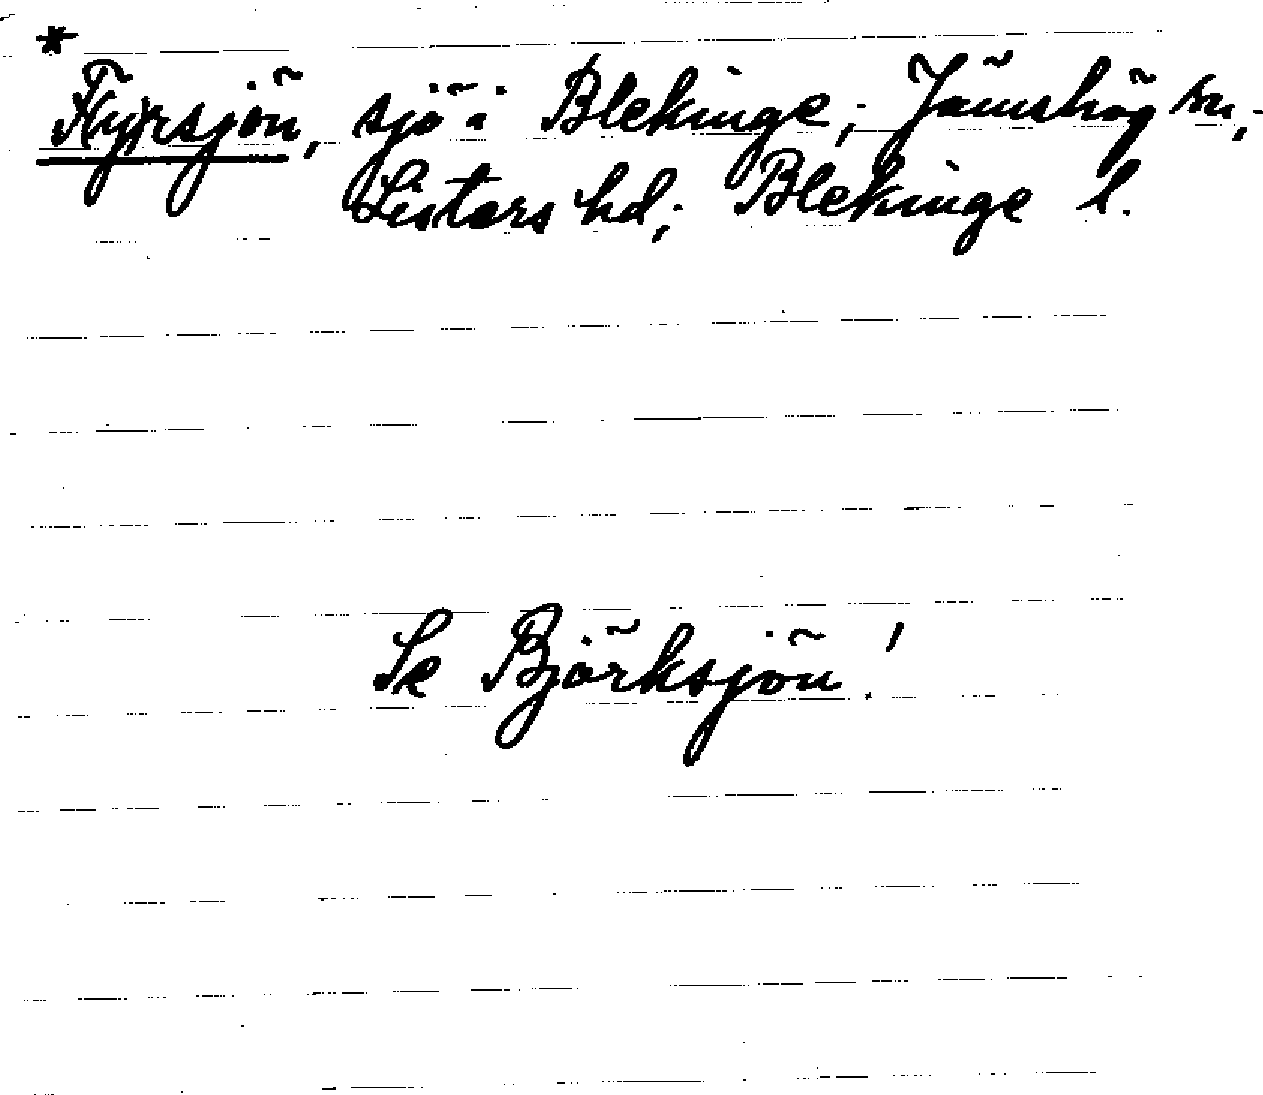 * Flyrsjön, sjö i Blekinge; Jämshög sn,
Listers hd; Blekinge l.
Se Björksjön!